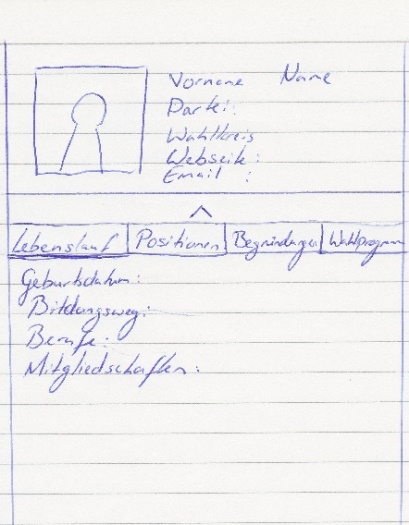 Vorname Name
Partei:
Wahlkreis
Webseite:
Email :
Lebenslauf Positionen Begründungen Wahlprogramm
Geburtsdatum:
Bildungsweg:
Berufe:
Mitgliedschaften: